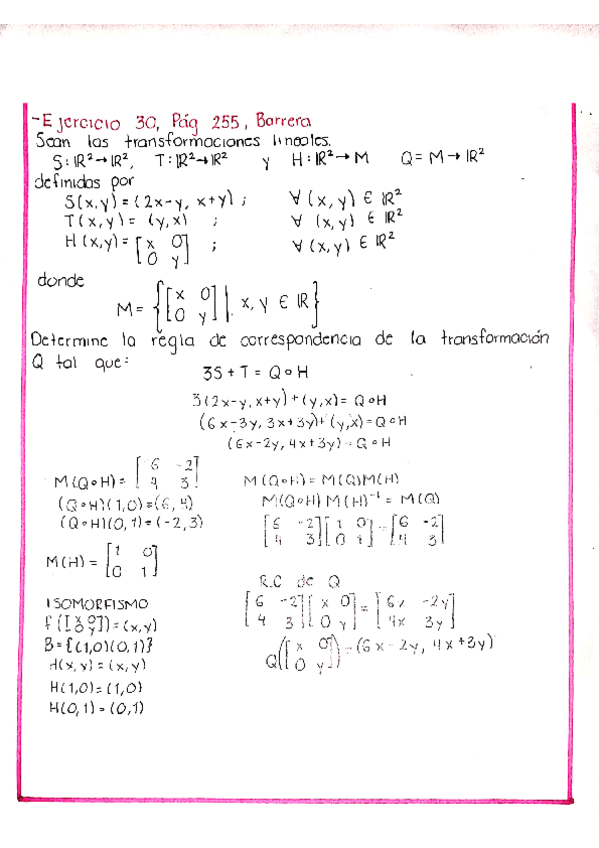 -Ejercicio 30, Pág 255, Barrera
Sean las transformaciones lineales.
S: ℝ²→ℝ², T: ℝ²→ℝ² y H: ℝ²→M Q=M→ℝ²
definidas por
S(x,y)=(2x-y, x+y) ; ∀(x,y) ∈ ℝ²
T(x,y)= (y,x) ; ∀ (x,y) ∈ ℝ²
H(x,y)= [x 0 ; ∀(x,y) ∈ ℝ²
0 y]
donde
M= {[x 0
0 y] | x, y ∈ ℝ}
Determine la regla de correspondencia de la transformación
Q tal que:
3S + T = Q∘H
3(2x-y, x+y)+(y,x)= Q∘H
(6x-3y, 3x+3y)+(y,x)=Q∘H
(6x-2y, 4x+3y)=Q∘H
M(Q∘H)= [6 -2
4 3]
(Q∘H)(1,0)=(6,4)
(Q∘H)(0,1)=(-2,3)
M(H)= [1 0
0 1]
ISOMORFISMO
f([x 0
0 y])=(x,y)
B={(1,0)(0,1)}
H(x,y)=(x,y)
H(1,0)=(1,0)
H(0,1)=(0,1)
M(Q∘H)=M(Q)M(H)
M(Q∘H)M(H)⁻¹=M(Q)
[6 -2 [1 0 = [6 -2
4 3] 0 1] 4 3]
R.C de Q
[6 -2 [x 0 = [6x -2y
4 3] 0 y] 4x 3y]
Q([x 0 =(6x-2y, 4x+3y)
0 y])